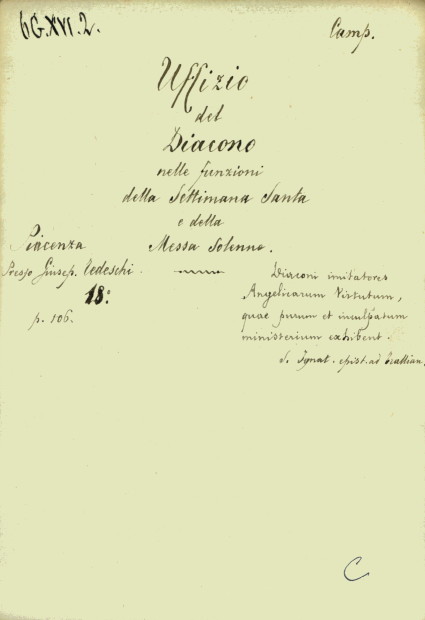 6G.XVI.2.
Camp.
Uffizio
del
Diacono
nelle funzioni
della Settimana Santa
e della
Messa Solenne.
Piacenza
Presso Giusep. Tedeschi.
18:
p. 106.
Diaconi imitatores
Angelicarum Virtutum,
quae purum et inculpatum
ministerium exhibent.
S. Ignat. epist. ad Trallian.
C